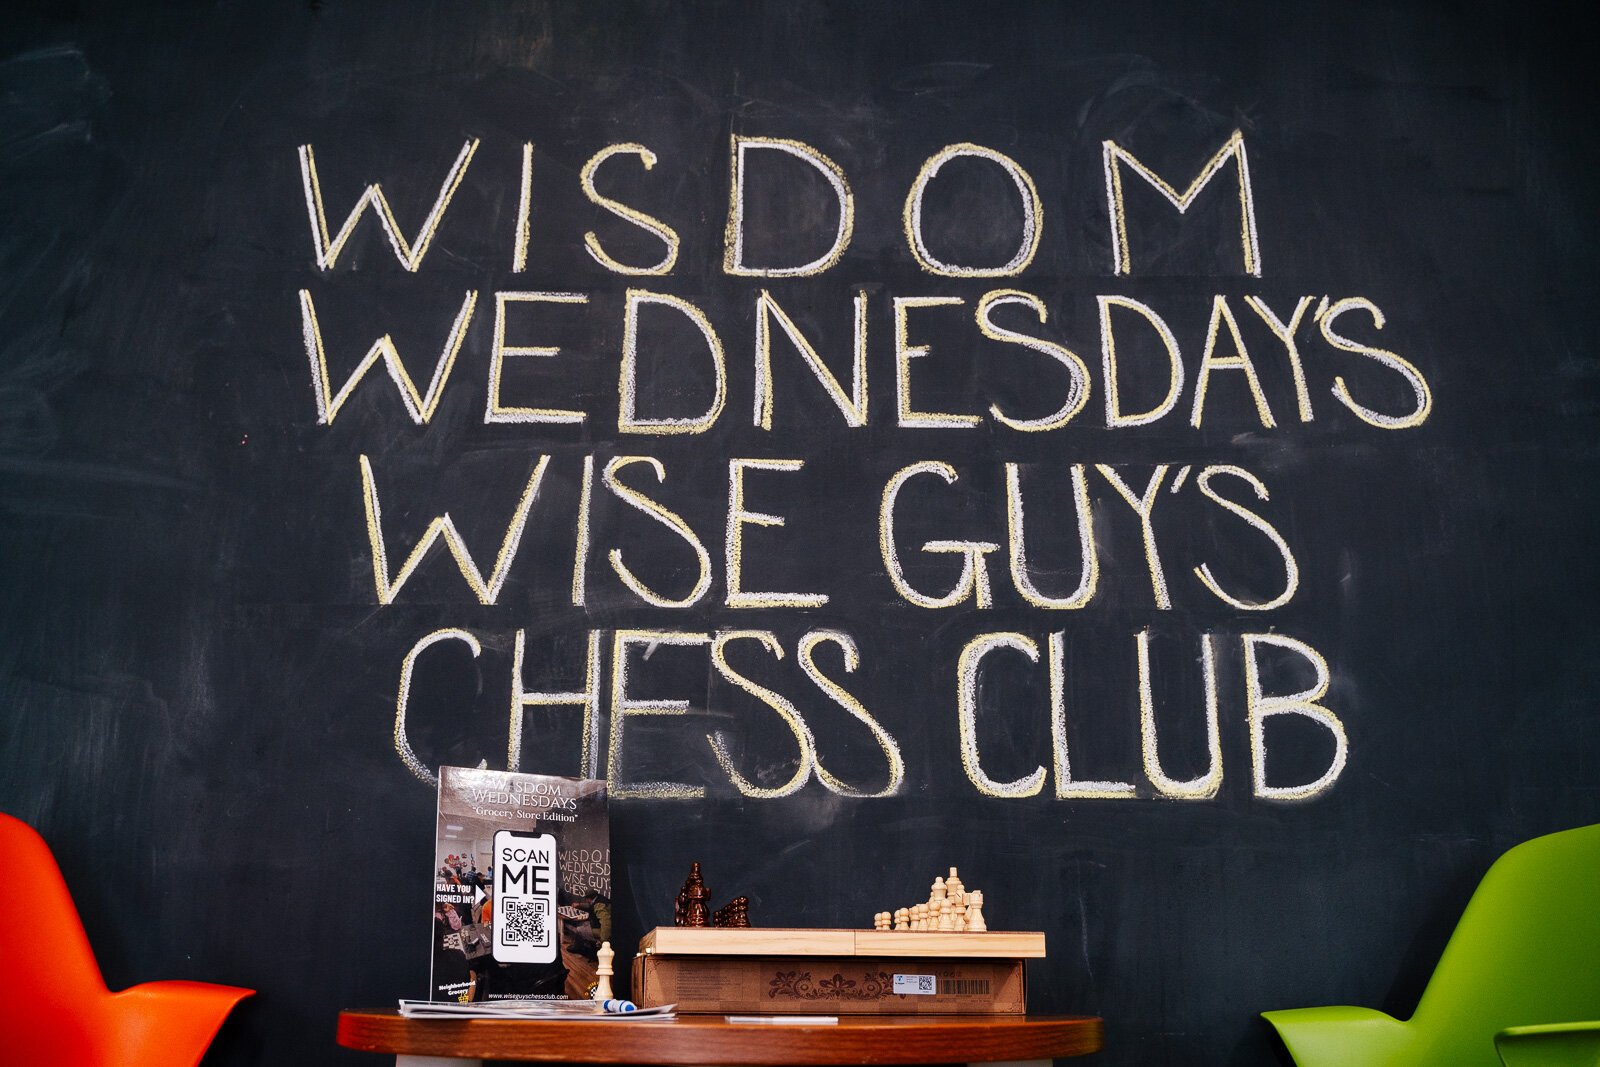 WISDOM
WEDNESDAY'S
WISE GUY'S
CHESS CLUB
WISDOM
WEDNESDAYS
"Grocery Store Edition"
SCAN
ME
HAVE YOU
SIGNED IN?
WISDO
WEDNESD
WISE GUY
CHES
Neighborhood
Grocery
www.wiseguyschessclub.com